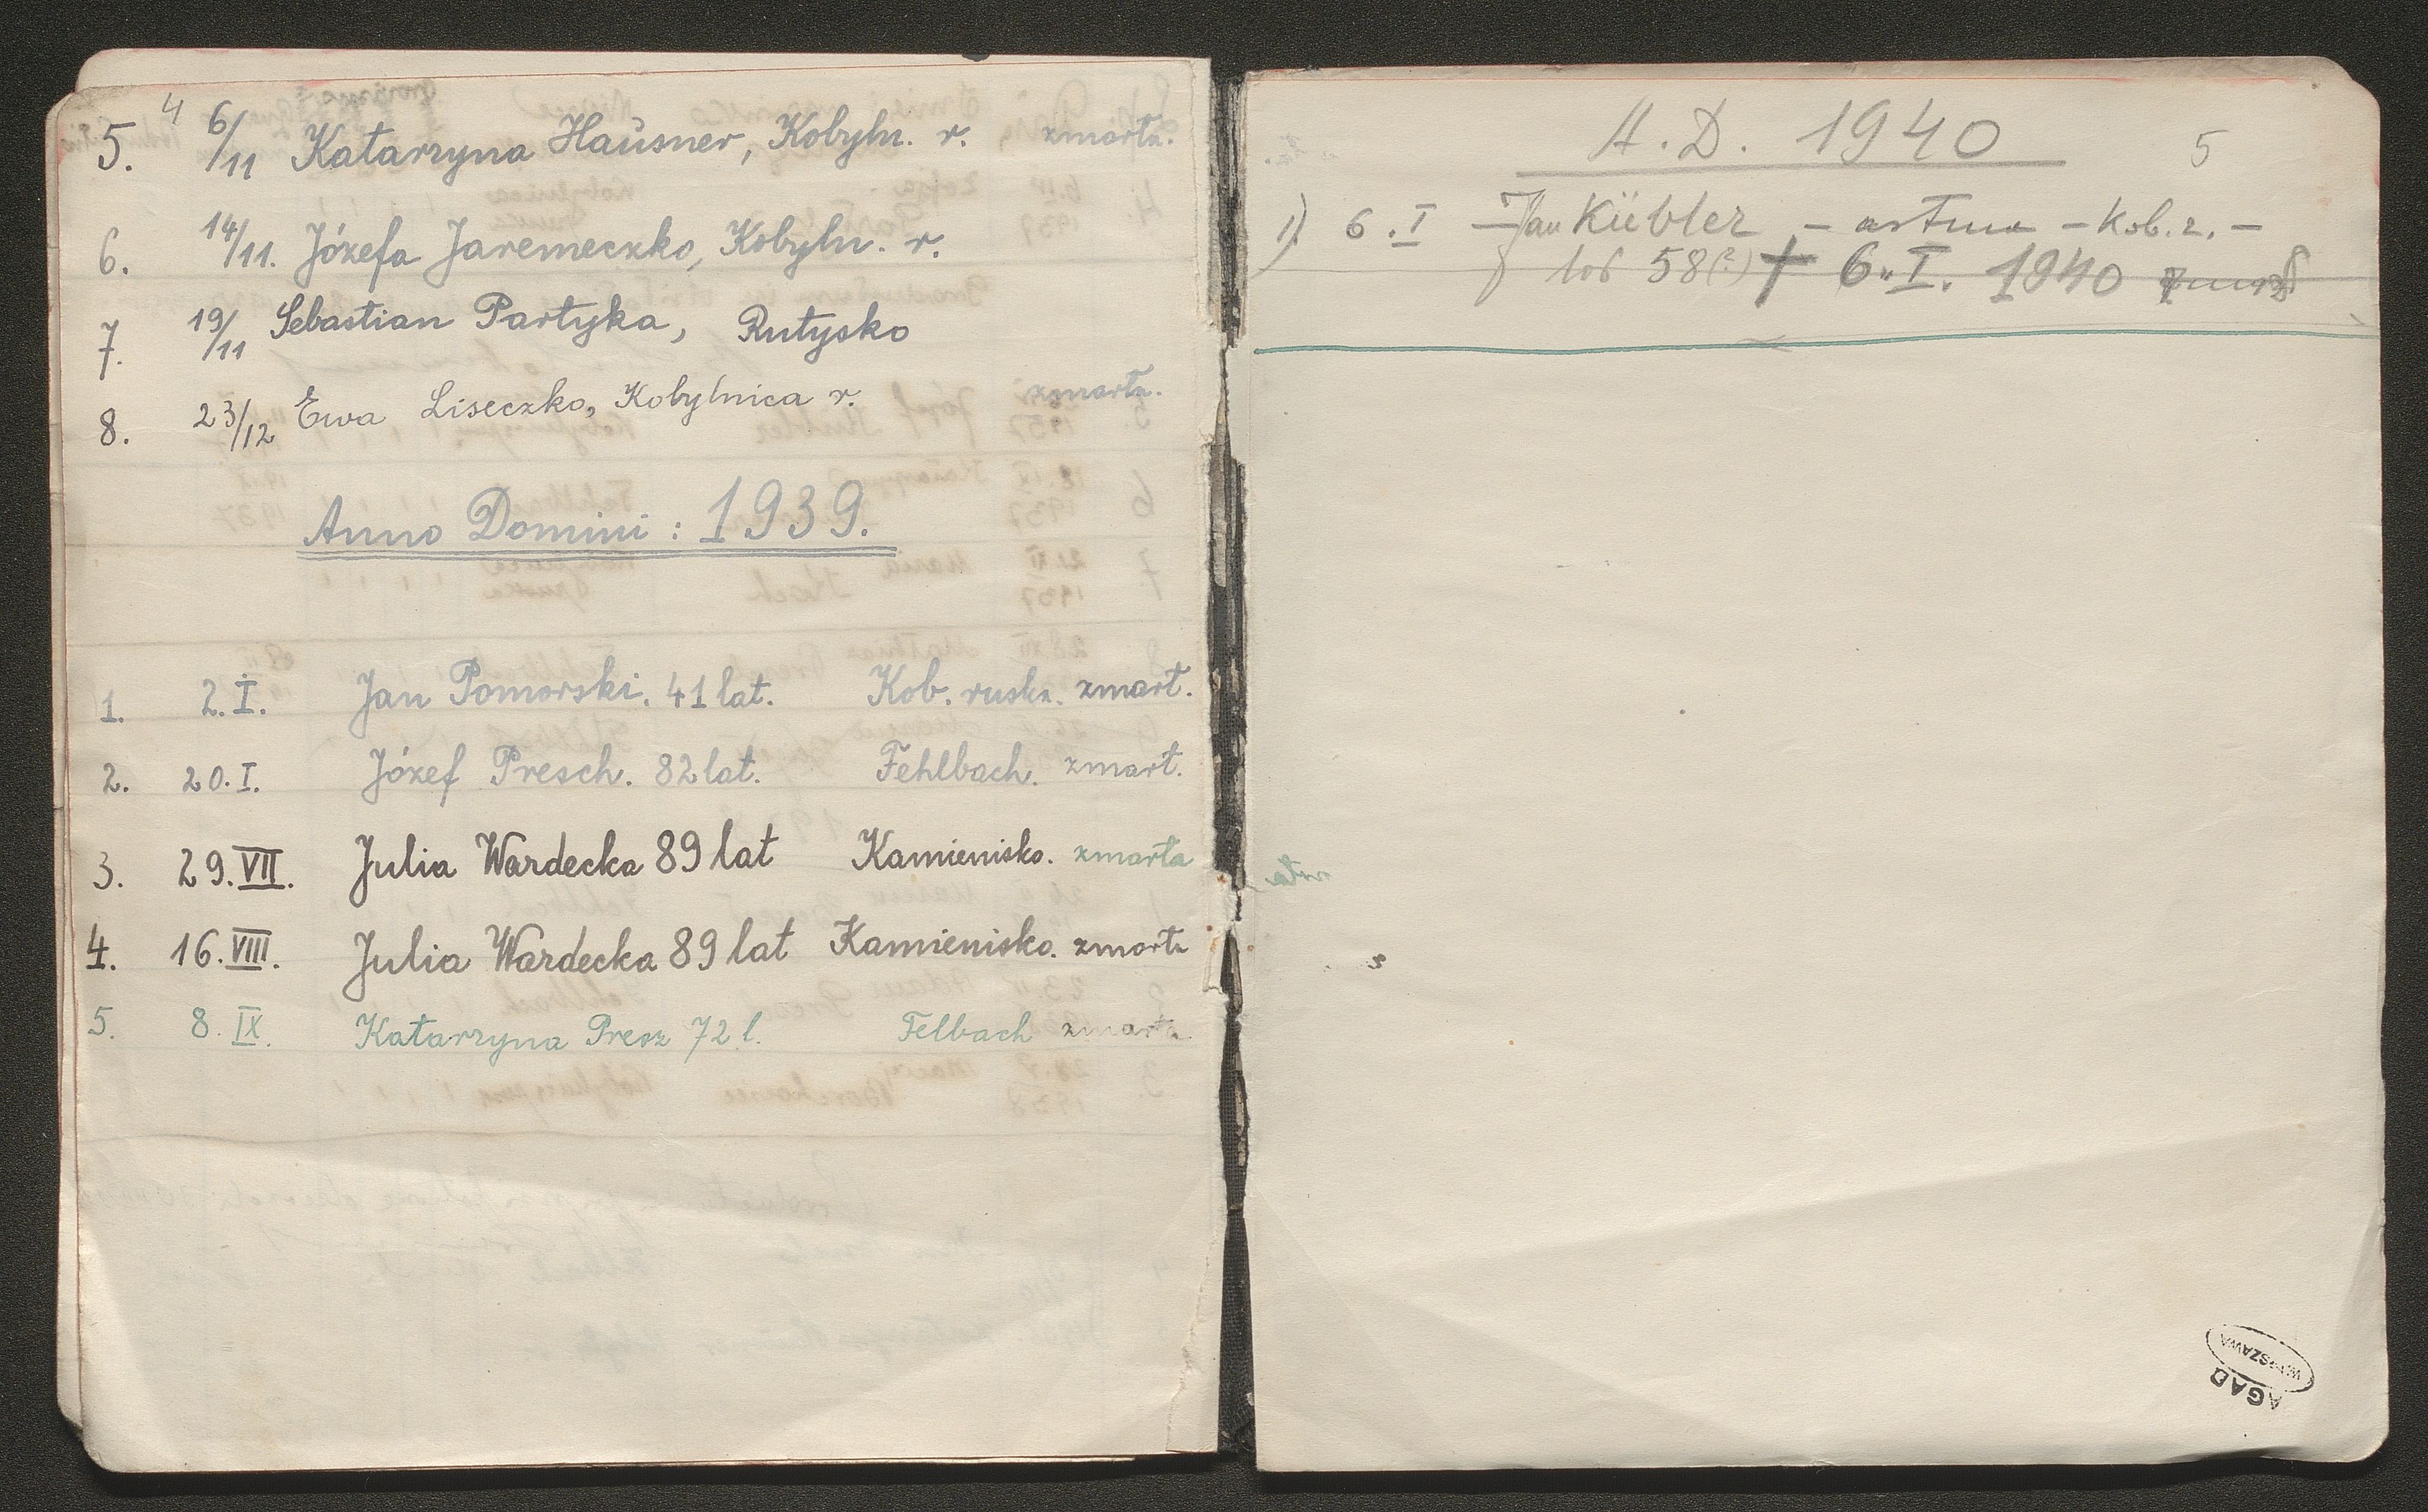 4
5. 6/11 Katarzyna Haŭsner, Kobyln. r. zmarta.
6. 14/11. Józefa Jaremeczko, Kobyln. r.
7. 19/11 Sebastian Partyka, Rutysko
8. 23/12 Ewa Liseczko, Kobylnica r. zmarta.
Anno Domini : 1939.
1. 2. I. Jan Pomorski. 41 lat. Kob. rusk. zmart.
2. 20. I. Józef Presch. 82 lat. Fehlbach. zmart.
3. 29. VII. Julia Wardecka 89 lat Kamienisko. zmarta
4. 16. VIII. Julia Wardecka 89 lat Kamienisko. zmarta
5. 8. IX. Katarzyna Presz 72 l. Felbach zmarta
A. D. 1940
5
1) 6. I Jan Kübler – astma – Kob. r. –
lat 58 (?) † 6. I. 1940
AGAD
WARSZAWA